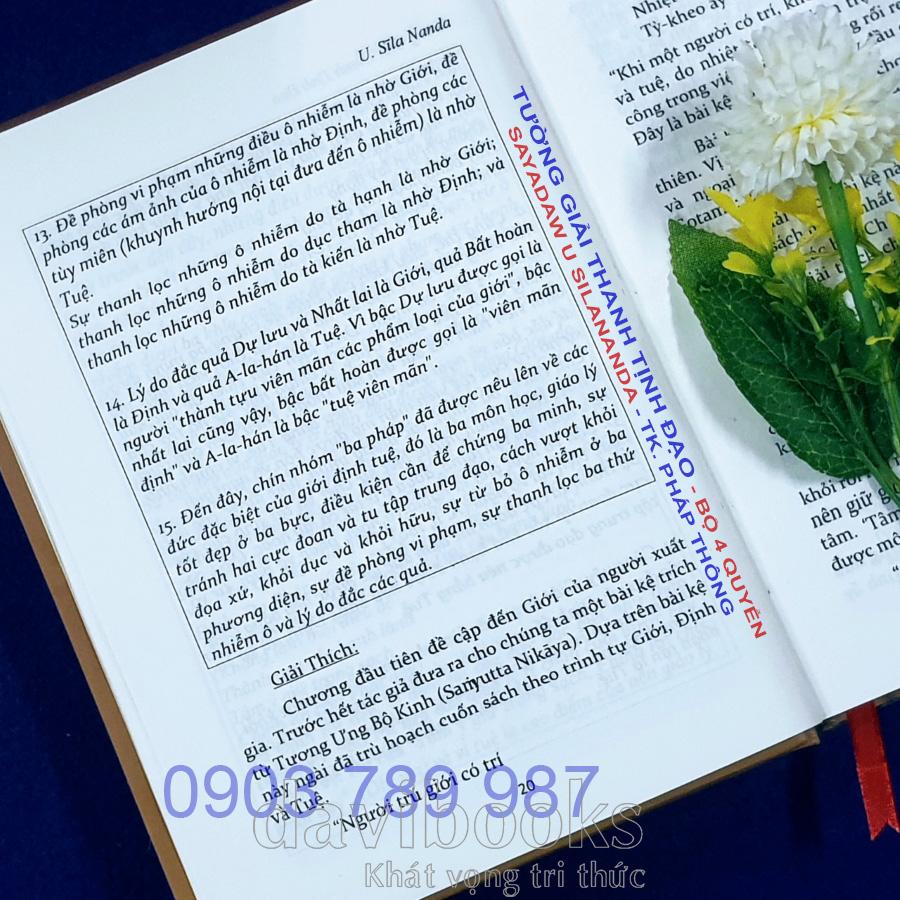 U. Sīla Nanda
13. Đề phòng vi phạm những điều ô nhiễm là nhờ Giới, đề
phòng các ám ảnh của ô nhiễm là nhờ Định, đề phòng các
tùy miên (khuynh hướng nội tại đưa đến ô nhiễm) là nhờ
Tuệ.
Sự thanh lọc những ô nhiễm do tà hạnh là nhờ Giới;
thanh lọc những ô nhiễm do dục tham là nhờ Định; và
thanh lọc những ô nhiễm do tà kiến là nhờ Tuệ.
14. Lý do đắc quả Dự lưu và Nhất lai là Giới, quả Bất hoàn
là Định và quả A-la-hán là Tuệ. Vì bậc Dự lưu được gọi là
người "thành tựu viên mãn các phẩm loại của giới", bậc
nhất lai cũng vậy, bậc bất hoàn được gọi là "viên mãn
định" và A-la-hán là bậc "tuệ viên mãn".
15. Đến đây, chín nhóm "ba pháp" đã được nêu lên về các
đức đặc biệt của giới định tuệ, đó là ba môn học, giáo lý
tốt đẹp ở ba bực, điều kiện cần để chứng ba minh, sự
tránh hai cực đoan và tu tập trung đạo, cách vượt khỏi
đọa xứ, khỏi dục và khỏi hữu, sự từ bỏ ô nhiễm ở ba
phương diện, sự đề phòng vi phạm, sự thanh lọc ba thứ
nhiễm ô và lý do đắc các quả.
Giải Thích:
Chương đầu tiên đề cập đến Giới của người xuất
gia. Trước hết tác giả đưa ra cho chúng ta một bài kệ trích
từ Tương Ưng Bộ Kinh (Saṃyutta Nikāya). Dựa trên bài kệ
này ngài đã trù hoạch cuốn sách theo trình tự Giới, Định
và Tuệ.
"Người trú giới có trí
20
TƯỜNG GIẢI THANH TỊNH ĐẠO - BỘ 4 QUYỂN
SAYADAW U SILANANDA - TK. PHÁP THÔNG
Tỳ-kheo ấy
"Khi một người có trí,
và tuệ, do nhiệt
công trong việ
Đây là bài kệ
thiên. Vì
và ngoại
khỏi rối
nên giữ
tâm. "Tâm
được mô
0903 789 987
davibooks
Khát vọng tri thức